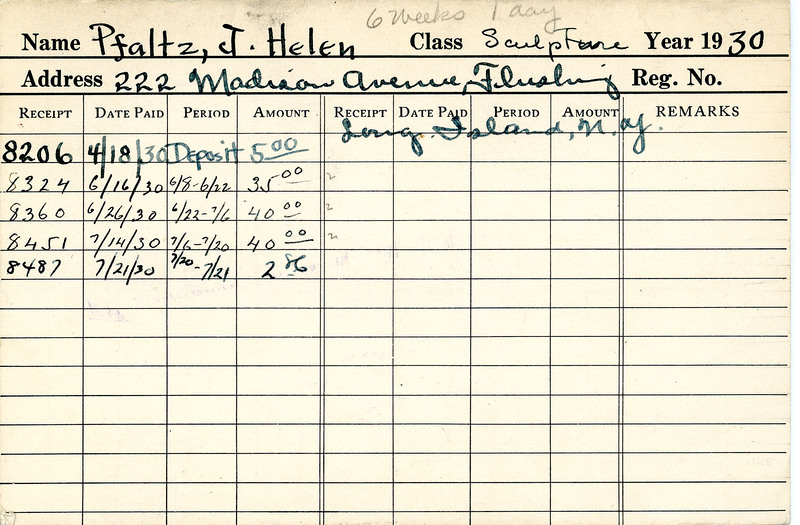 6 Weeks 1 day
Name Pfaltz, J. Helen Class Sculpture Year 1930
Address 222 Madison Avenue, Flushing Reg. No.
RECEIPT DATE PAID PERIOD AMOUNT RECEIPT DATE PAID PERIOD AMOUNT REMARKS
Long Island, N.Y.
8206 4/18/30 Deposit 5.00
8324 6/16/30 6/8-6/22 35.00 2
8360 6/26/30 6/22-7/6 40.00 2
8451 7/14/30 7/6-7/20 40.00 2
8487 7/21/30 7/20-7/21 2.86